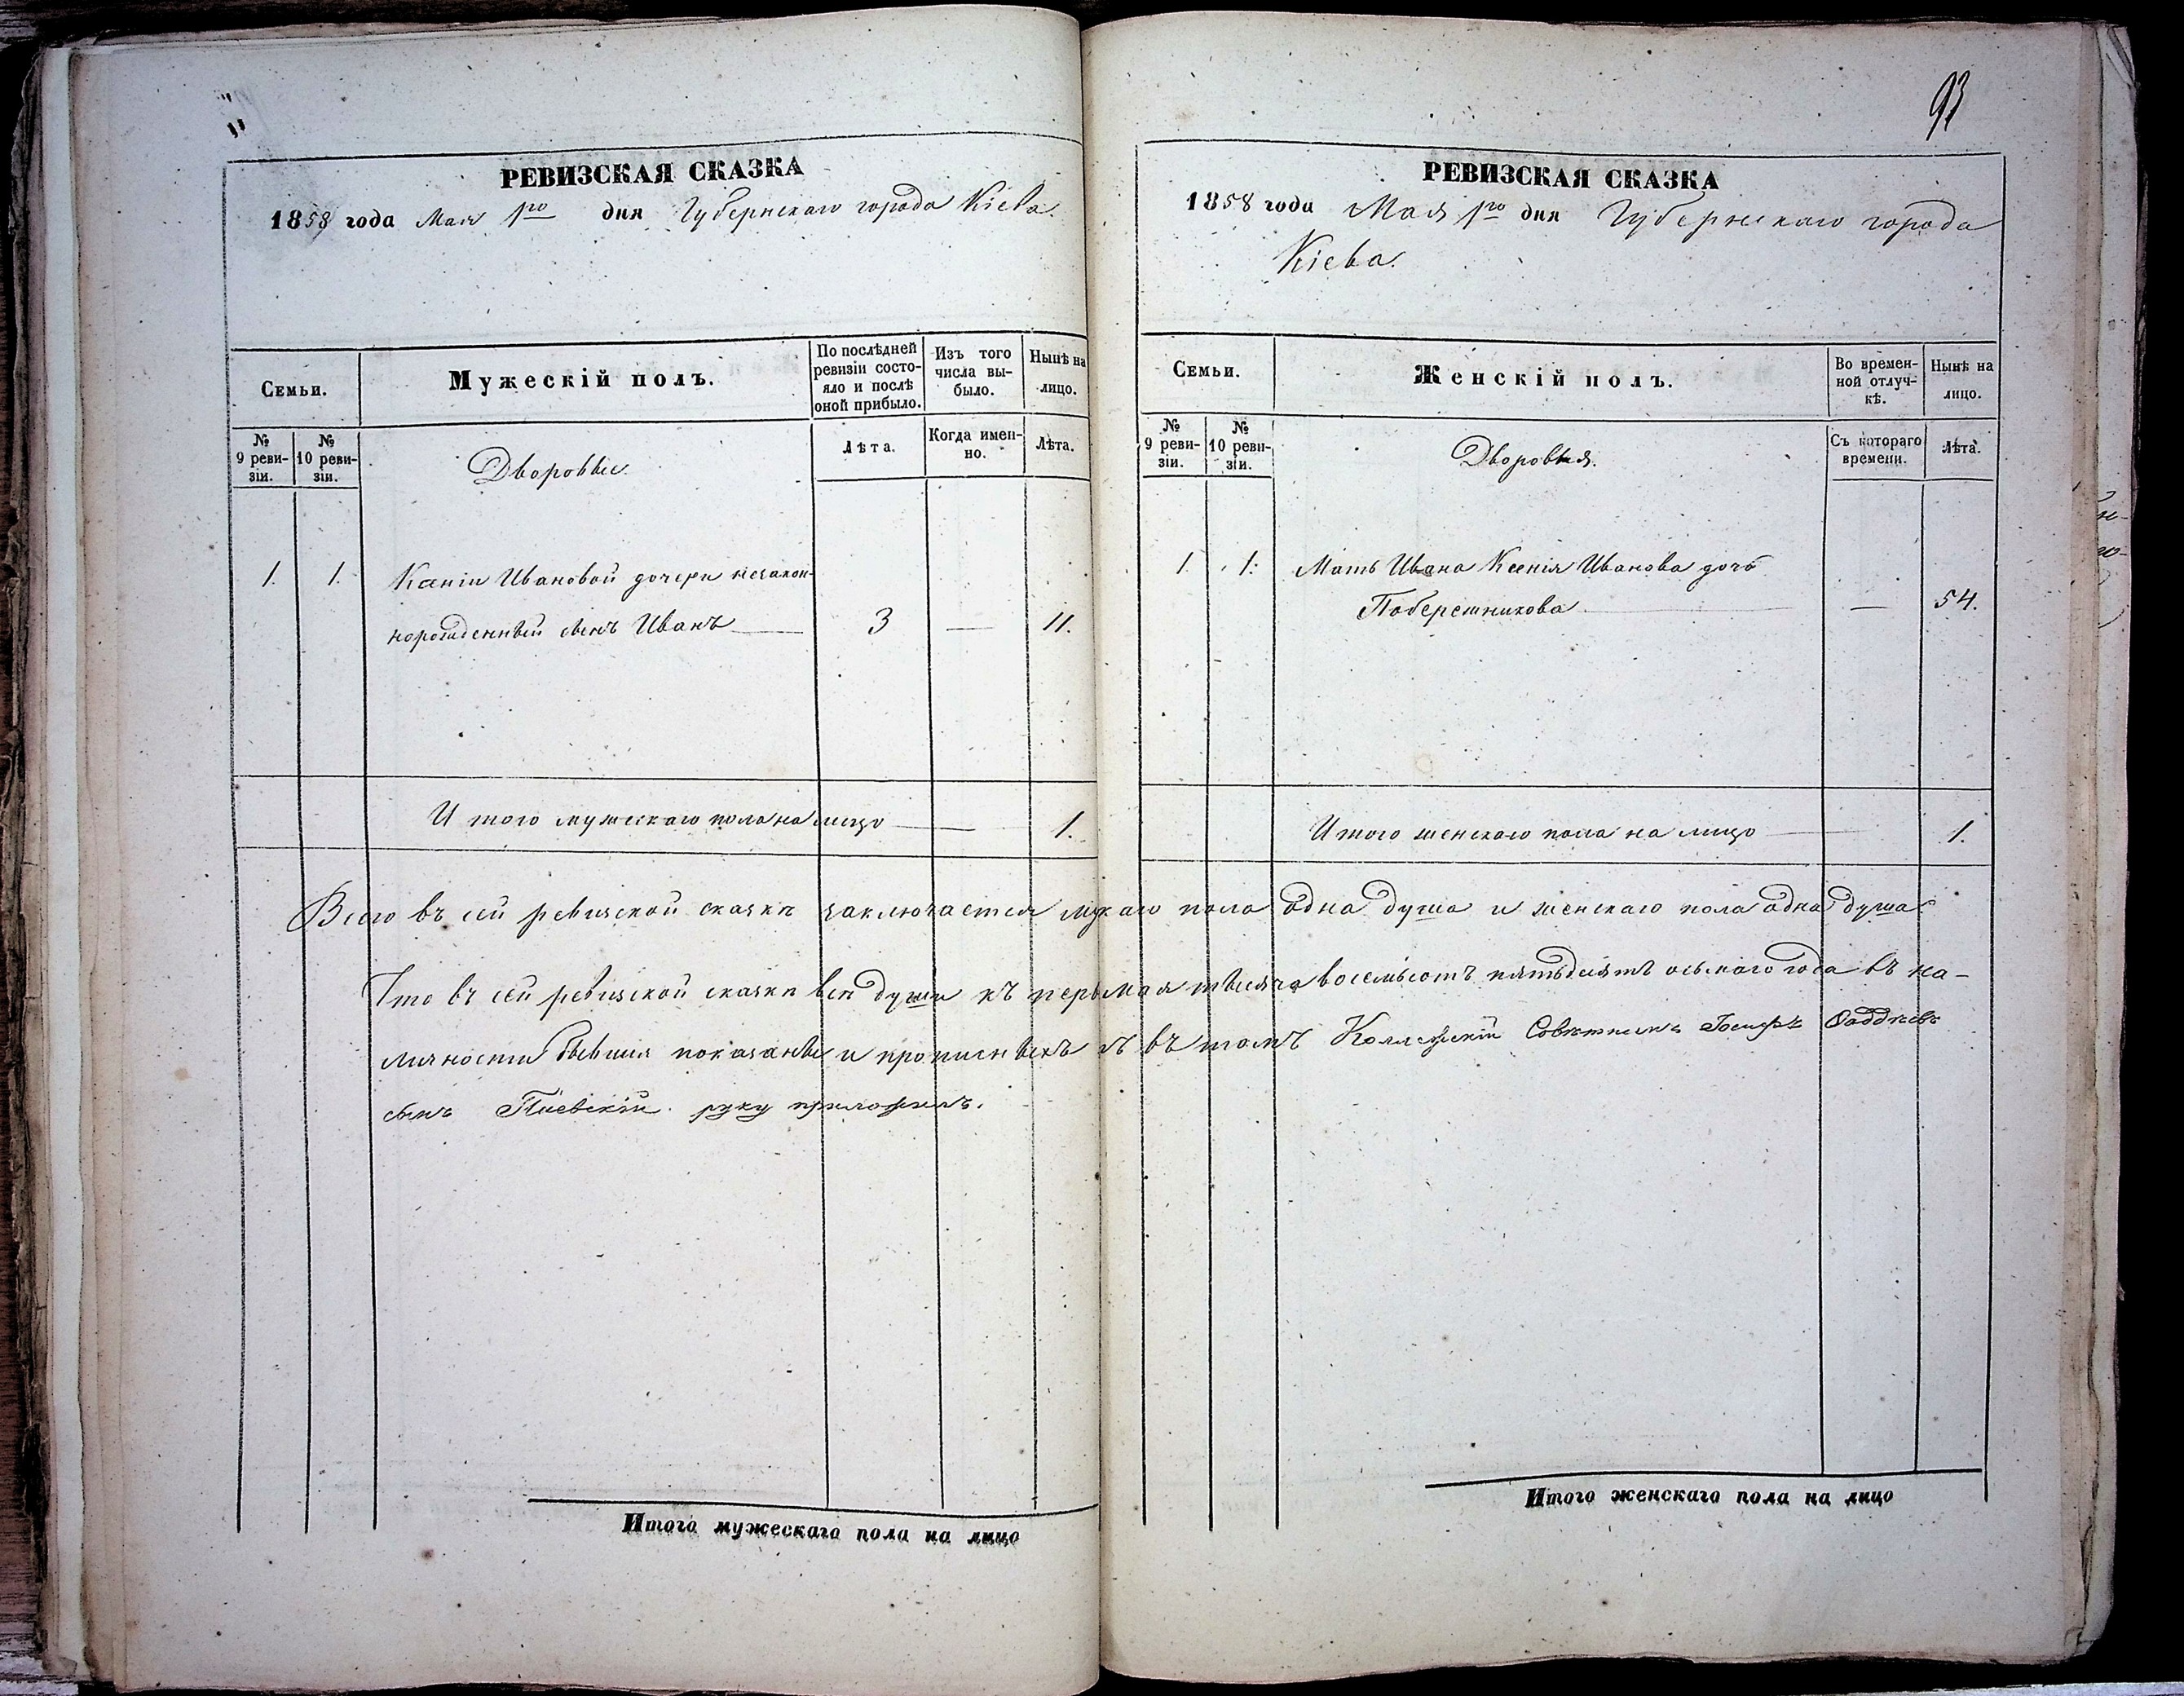 РЕВИЗСКАЯ СКАЗКА
1858 года Мая 1го дня Губернскаго города Кіева.
Семьи.
Мужескій полъ.
По послѣдней ревизіи состояло и послѣ оной прибыло.
Изъ того числа выбыло.
Нынѣ на лицо.
№ 9 ревизіи.
№ 10 ревизіи.
Дворовые.
Лѣта.
Когда именно.
Лѣта.
1. 1. Ксніи Ивановой дочери незакон-
норожденный сынъ Иванъ — 3 — 11.
И того мужескаго пола на лицо — — 1.
Итого мужескаго пола на лицо
93
РЕВИЗСКАЯ СКАЗКА
1858 года Мая 1го дня Губернскаго города
Кіева.
Семьи.
Женскій полъ.
Во временной отлучкѣ.
Нынѣ на лицо.
№ 9 ревизіи.
№ 10 ревизіи.
Дворовыя.
Съ котораго времени.
Лѣта.
1. 1. Мать Ивана Ксенія Иванова дочь
Побережникова — — 54.
Итого женскаго пола на лицо — 1.
Итого женскаго пола на лицо
Всего въ сей ревизской сказкѣ заключается мужскаго пола одна душа и женскаго пола одна душа.
Что въ сей ревизской сказкѣ всѣ души къ 1 мая тысяча восемьсотъ пятьдесятъ осьмого года въ на-
личности бывшія показаны и прописныхъ въ томъ Коллежскій Совѣтникъ Іосифъ Фаддѣевъ
сынъ руку приложилъ.